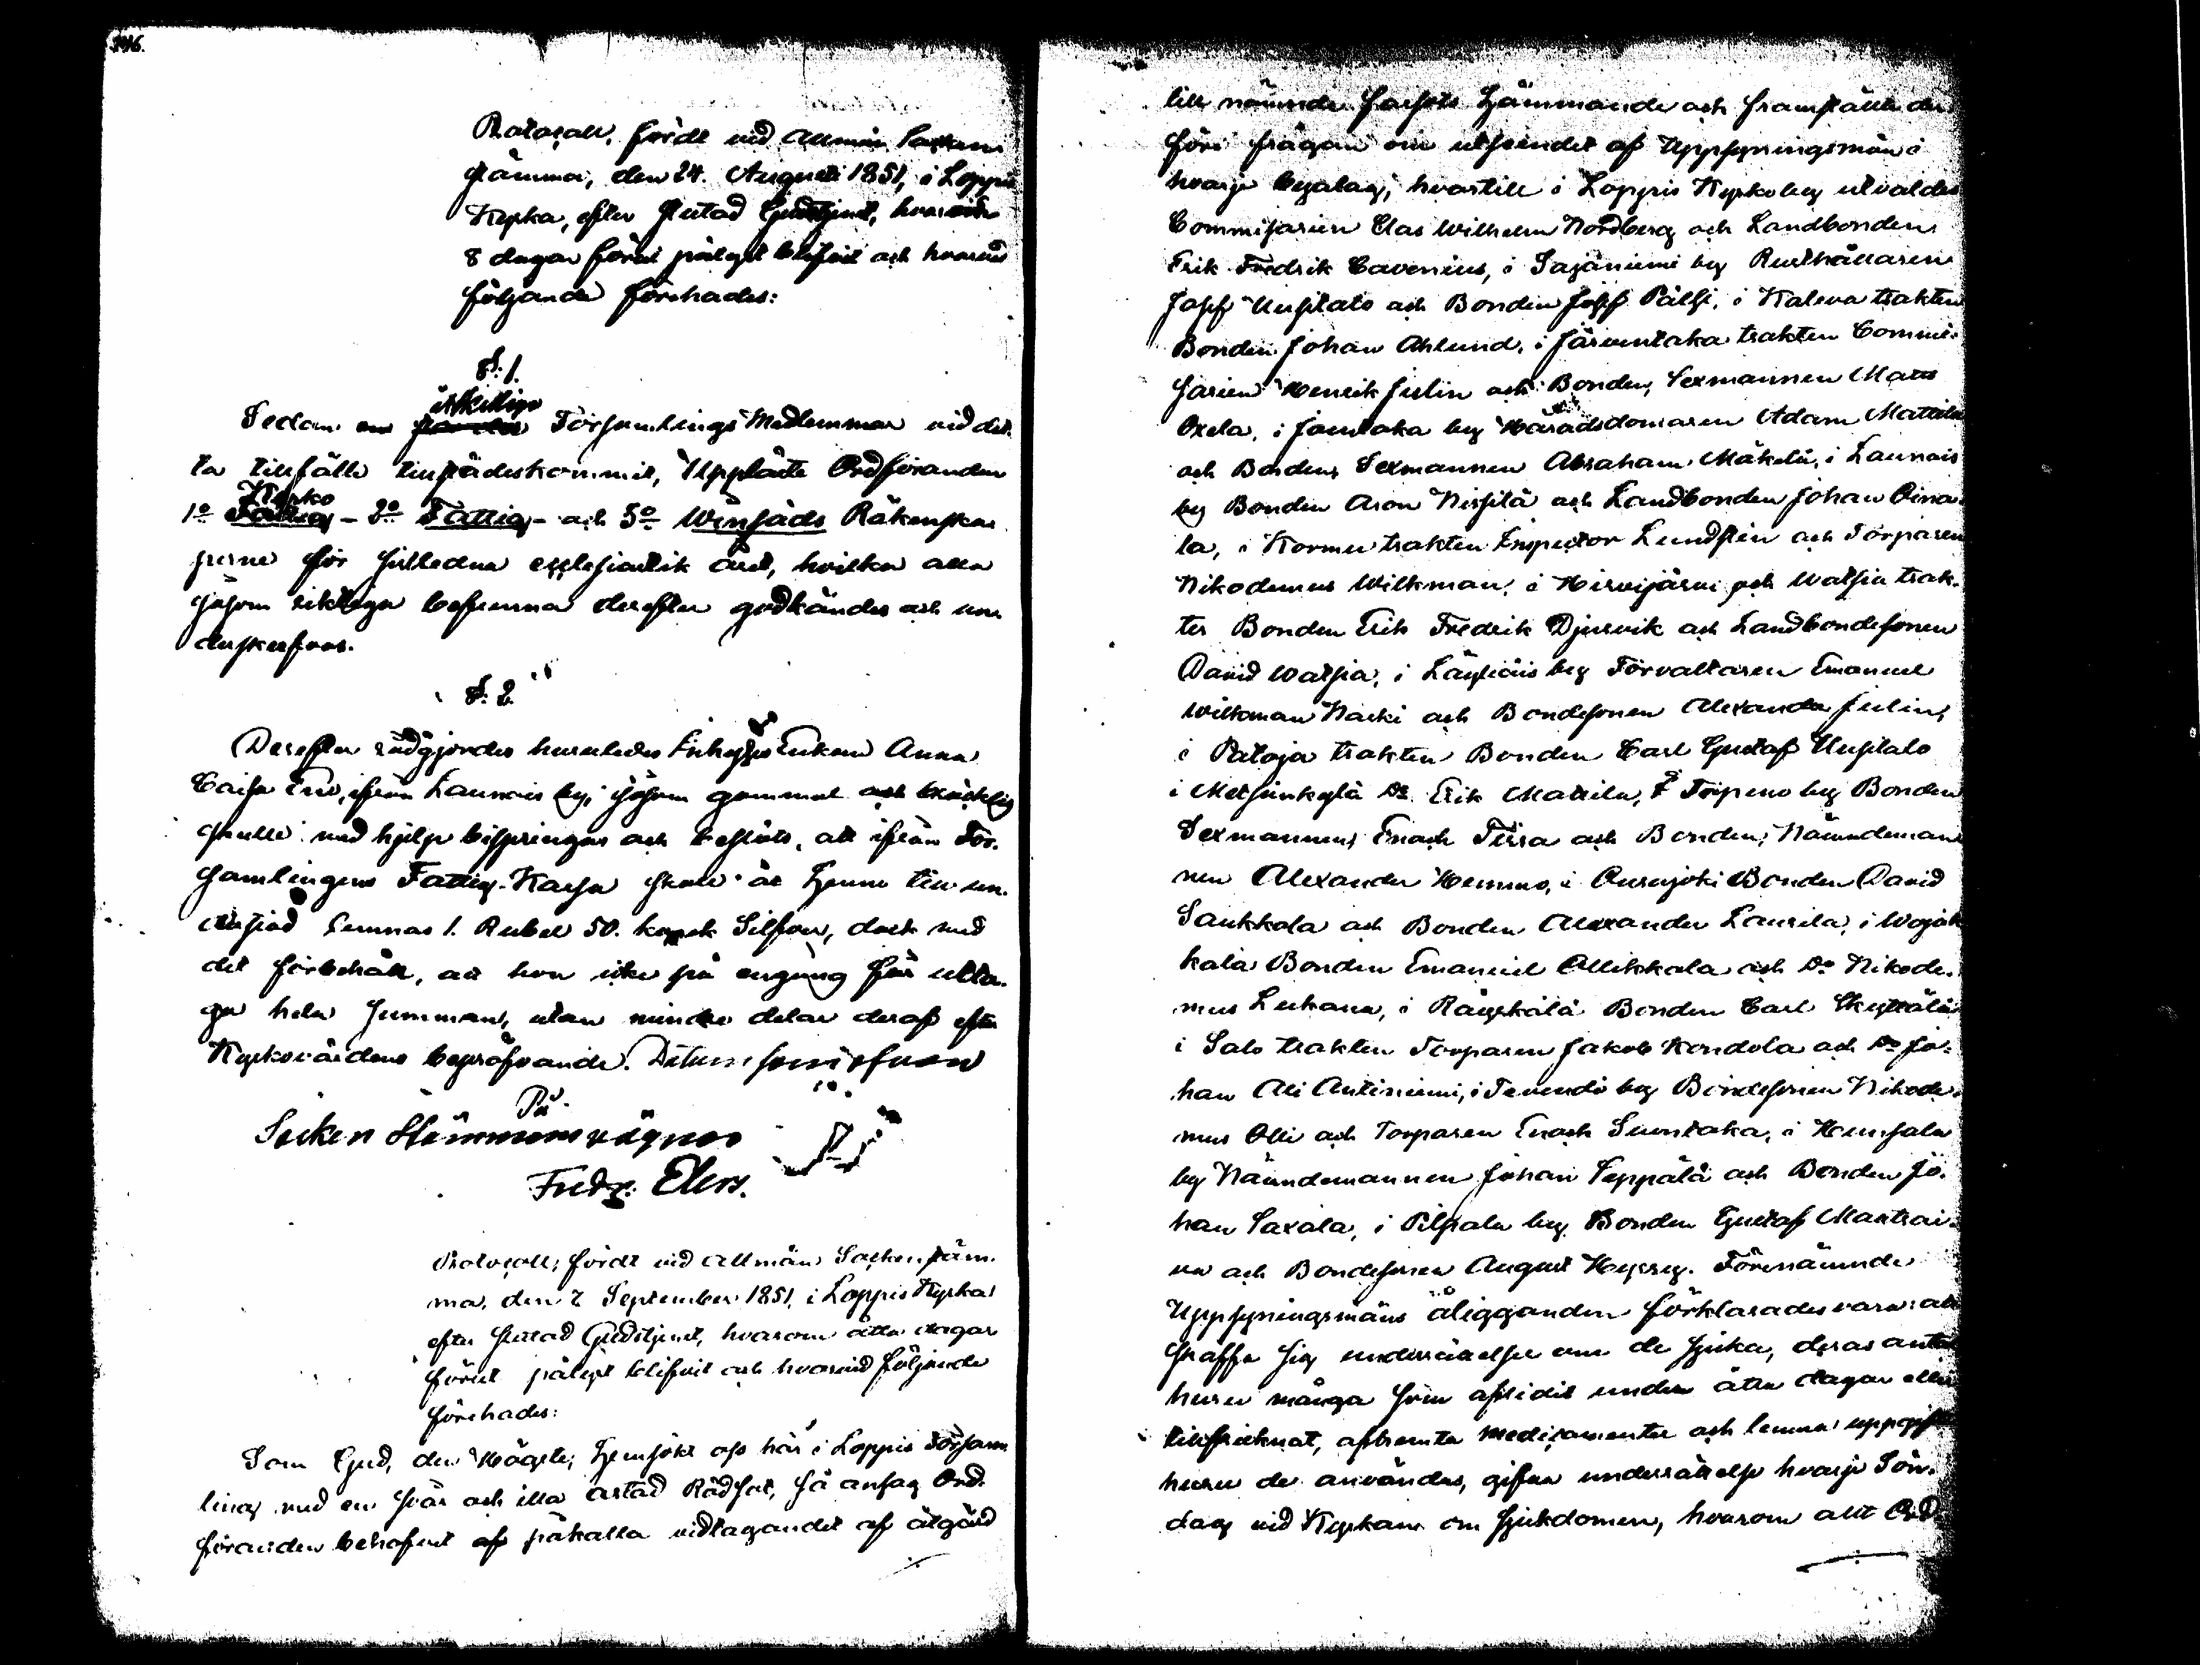 346.
Protocoll, fördt vid Allmän Sockne
stämma, den 24. Augusti 1851, i Loppis
Kyrka, efter slutad Gudstjenst, hvarom
8 dagar förut pålyst blifvit och hvarvid
följande förehades:
§. 1.
åtskillige
Sedan Församlings Medlemmar vid det
ta tillfälle tillstädeskommit, Uppläste Ordföranden
Kyrko
1o Fattig - 2o Fattig - och 3o Winsäds Räkenska
perne för sistledna ecclesiastik året, hvilka alla
såsom riktiga befunna derefter godkändes och un
derskrefvos.
§. 2.
Derefter rådgjordes huruledes Inhyses Enkan Anna
Caisa, ifrån Launois by, såsom gammal och bräcklig
skulle med hjelp bispringas och beslöts, att ifrån För-
samlingens Fattig-Kassa skall åt henne till un-
derstöd lemnas 1. Rubel 50. kopek Silfver, dock med
det förbehåll, att hon icke på engång får utta-
ga hela summan, utan mindre delar deraf efter
Kyrkovärdens bepröfvande. Datum som ofvan
På
Socken Stämmans vägnar
Fredr. Elers.
Protocoll, fördt vid allmän Sockenstäm-
ma, den 7 September 1851, i Loppis Kyrka
efter slutad Gudstjenst, hvarom åtta dagar
förut pålyst blifvit och hvarvid följande
förehades:
Som Gud, den Högste, hemsökt oss här i Loppis Försam
ling med en svår och illa artad Rödsot, så ansåg Ord-
föranden behofvet af påkalla vidtagandet af åtgärd
till nämnde farsots hämmande och framställde der
före frågan om utseendet af Uppsyningsmän i
hvarje byalag, hvartill i Loppis Kyrkoby utvaldes
Commissarien Clas Wilhelm Nordberg och Landbonden
Erik Fredrik Cavenius, i Sajaniemi by Rusthållaren
Josef Uusitalo och Bonden Josef Pälsi, i Kaleva trakten
Bonden Johan Ahlund, i Järventaka trakten Commis-
sarien Henrik Julin och Bonden, Sexmannen Matts
Oxela, i Joentaka by Häradsdomaren Adam Mattila
och Bonden, Sexmannen Abraham Mäkelä, i Launois
by Bonden Aron Nissilä och Landbonden Johan Oina-
la, i Kormu trakten Inspector Lundsten och Torparen
Nikodemus Wilkman, i Hirvijärvi och Watsia trak-
ter Bonden Erik Fredrik Djurvik och Landbondesonen
David Watsia, i Läyliäis by Förvaltaren Emanuel
Wilkman Naski och Bondesonen Alexander Julin,
i Pataja trakten Bonden Carl Gustaf Uusitalo
i Metsänkylä Do Erik Mattila, i Topeno by Bonden
Sexmannen, Enoch Tirra och Bonden, Nämndeman
nen Alexander Hemmo, i Ourajoki Bonden David
Saukkola och Bonden Alexander Laurila, i Wojak
kala Bonden Emanuel Ollikkala och Do Nikode-
mus Lukana, i Räyskälä Bonden Carl Skyttälä
i Salo trakten Torparen Jakob Kondola och Do Jo-
han Ali Antiniemi, i Tevendö by Bondesonen Nikode-
mus Olli och Torparen Enoch Suontaka, i Hunsala
by Nämndemannen Johan Seppälä och Bonden Jo-
han Saxala, i Pilpala by Bonden Gustaf Mantrai-
va och Bondesonen August Hyrsy. Förenämnde
Uppsyningsmäns åligganden förklarades vara: att
skaffa sig underrättelse om de sjuka, deras antal
huru många som aflidit under åtta dagar eller
tillfrisknat, afhemta medicamenter och lemna uppgift
huru de användas, gifva underrättelse hvarje Sön-
dag vid Kyrkan om sjukdomen, hvarom allt Ord